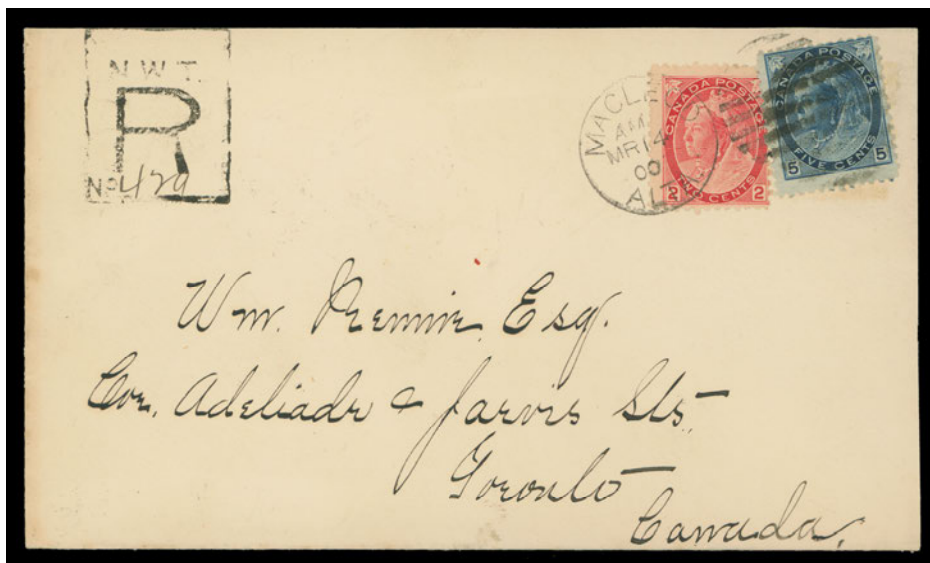 N.W.T.
R
No 429
MACLE
AM
MR 14
00
ALT
CANADA POSTAGE
2 TWO CENTS 2
CANADA POSTAGE
5 FIVE CENTS 5
Wm. Rennie, Esq.
Cor. Adeliade & Jarvis Sts
Toronto
Canada.